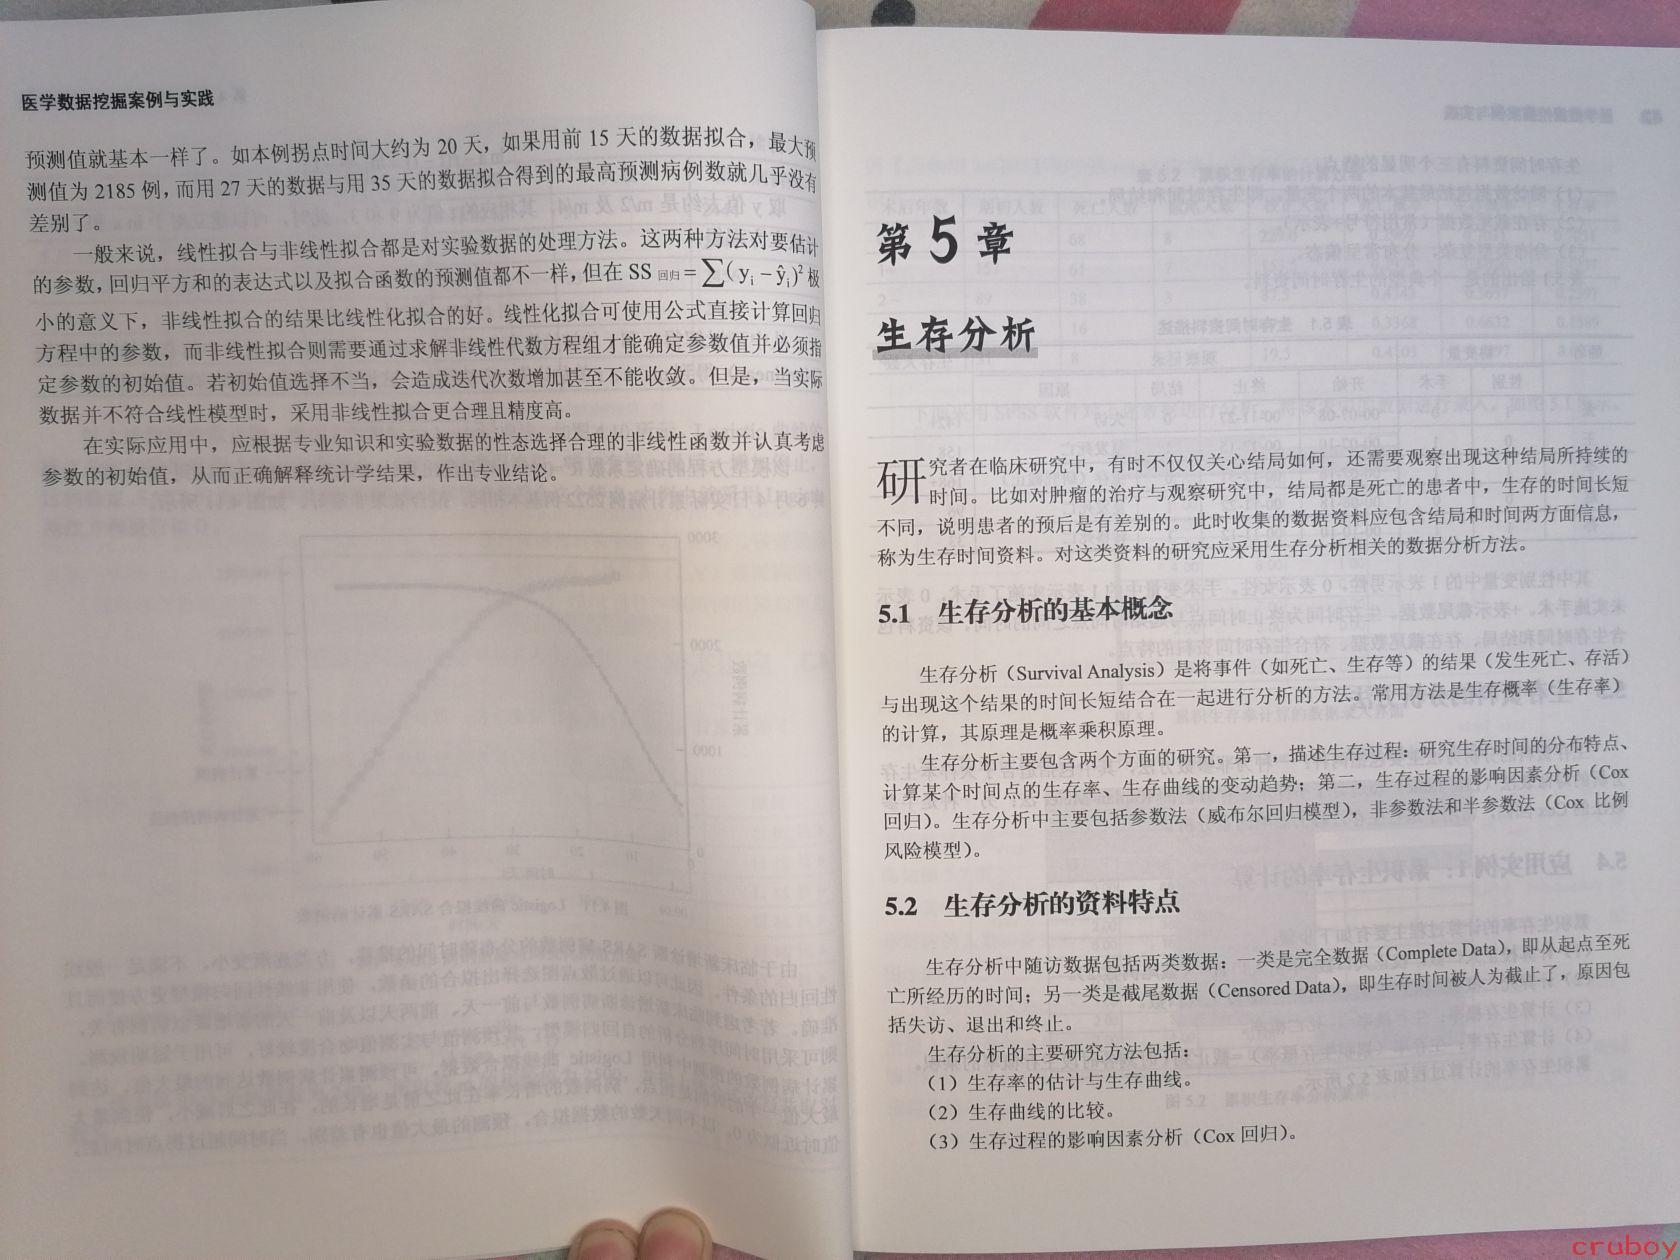 医学数据挖掘案例与实践
预测值就基本一样了。如本例拐点时间大约为 20 天，如果用前 15 天的数据拟合，最大预
测值为 2185 例，而用 27 天的数据与用 35 天的数据拟合得到的最高预测病例数就几乎没有
差别了。
一般来说，线性拟合与非线性拟合都是对实验数据的处理方法。这两种方法对要估计
的参数，回归平方和的表达式以及拟合函数的预测值都不一样，但在 SS 回归 = ∑(yᵢ − ŷᵢ)² 极
小的意义下，非线性拟合的结果比线性化拟合的好。线性化拟合可使用公式直接计算回归
方程中的参数，而非线性拟合则需要通过求解非线性代数方程组才能确定参数值并必须指
定参数的初始值。若初始值选择不当，会造成迭代次数增加甚至不能收敛。但是，当实际
数据并不符合线性模型时，采用非线性拟合更合理且精度高。
在实际应用中，应根据专业知识和实验数据的性态选择合理的非线性函数并认真考虑
参数的初始值，从而正确解释统计学结果，作出专业结论。
第 5 章
生存分析
研究者在临床研究中，有时不仅仅关心结局如何，还需要观察出现这种结局所持续的
时间。比如对肿瘤的治疗与观察研究中，结局都是死亡的患者中，生存的时间长短
不同，说明患者的预后是有差别的。此时收集的数据资料应包含结局和时间两方面信息，
称为生存时间资料。对这类资料的研究应采用生存分析相关的数据分析方法。
5.1 生存分析的基本概念
生存分析（Survival Analysis）是将事件（如死亡、生存等）的结果（发生死亡、存活）
与出现这个结果的时间长短结合在一起进行分析的方法。常用方法是生存概率（生存率）
的计算，其原理是概率乘积原理。
生存分析主要包含两个方面的研究。第一，描述生存过程：研究生存时间的分布特点、
计算某个时间点的生存率、生存曲线的变动趋势；第二，生存过程的影响因素分析（Cox
回归）。生存分析中主要包括参数法（威布尔回归模型），非参数法和半参数法（Cox 比例
风险模型）。
5.2 生存分析的资料特点
生存分析中随访数据包括两类数据：一类是完全数据（Complete Data），即从起点至死
亡所经历的时间；另一类是截尾数据（Censored Data），即生存时间被人为截止了，原因包
括失访、退出和终止。
生存分析的主要研究方法包括：
（1）生存率的估计与生存曲线。
（2）生存曲线的比较。
（3）生存过程的影响因素分析（Cox 回归）。
cruboy